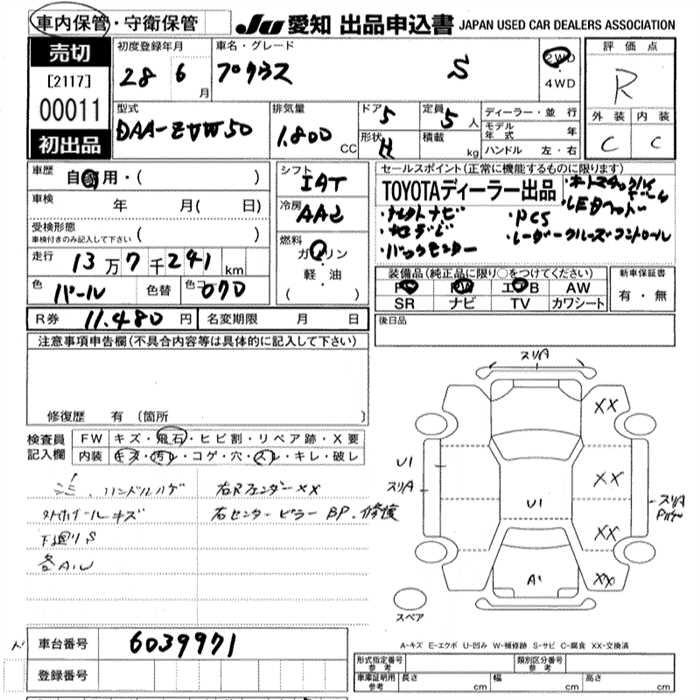 車内保管・守衛保管
JU 愛知 出品申込書 JAPAN USED CAR DEALERS ASSOCIATION
売切
[2117]
00011
初出品
初度登録年月
28 6月
車名・グレード
プリウス S
2WD
・
4WD
評価点
R
外装 内装
C C
型式
DAA-ZVW50
排気量
1.800 CC
ドア 5
形状 H
定員 5人
積載 kg
ディーラー・並行
モデル年式 年
ハンドル 左・右
車歴
自家用・( )
車検 年 月( 日)
受検形態
車検付きのみ記入して下さい ( )
走行 13万7千241km
色 パール 色替 色コ 070
R券 11.480円 名変期限 月 日
シフト
IAT
冷房
AAC
燃料
ガソリン
・
軽・油
( )
セールスポイント(正常に機能するものに限ります)
TOYOTAディーラー出品
・オートマチックハイビーム
・LEDヘッド
・ナビ
・PCS
・レーダークルーズコントロール
・バックモニター
装備品(純正品に限り○をつけてください)
PS PW エアB AW
SR ナビ TV カワシート
新車保証書
有・無
後日品
注意事項申告欄(不具合内容等は具体的に記入して下さい)
修復歴 有(箇所
検査員記入欄
FW キズ・飛石・ヒビ割・リペア跡・X要
内装 キズ・汚レ・コゲ・穴・スレ・キレ・破レ
ハンドルハゲ
右Rフェンダー XX
外ホイールキズ
右センターピラー BP.修復
下廻りS
各A.U
スリA
XX
XX
XX
XX
U1
スリA
U1
スリA
A1
スペア
A-キズ E-エクボ U-凹み W-補修跡 S-サビ C-腐食 XX-交換済
車台番号 6039971
登録番号
形式指定番号 参考
類別区分番号 参考
車庫証明用 参考 長さ cm 幅 cm 高さ cm